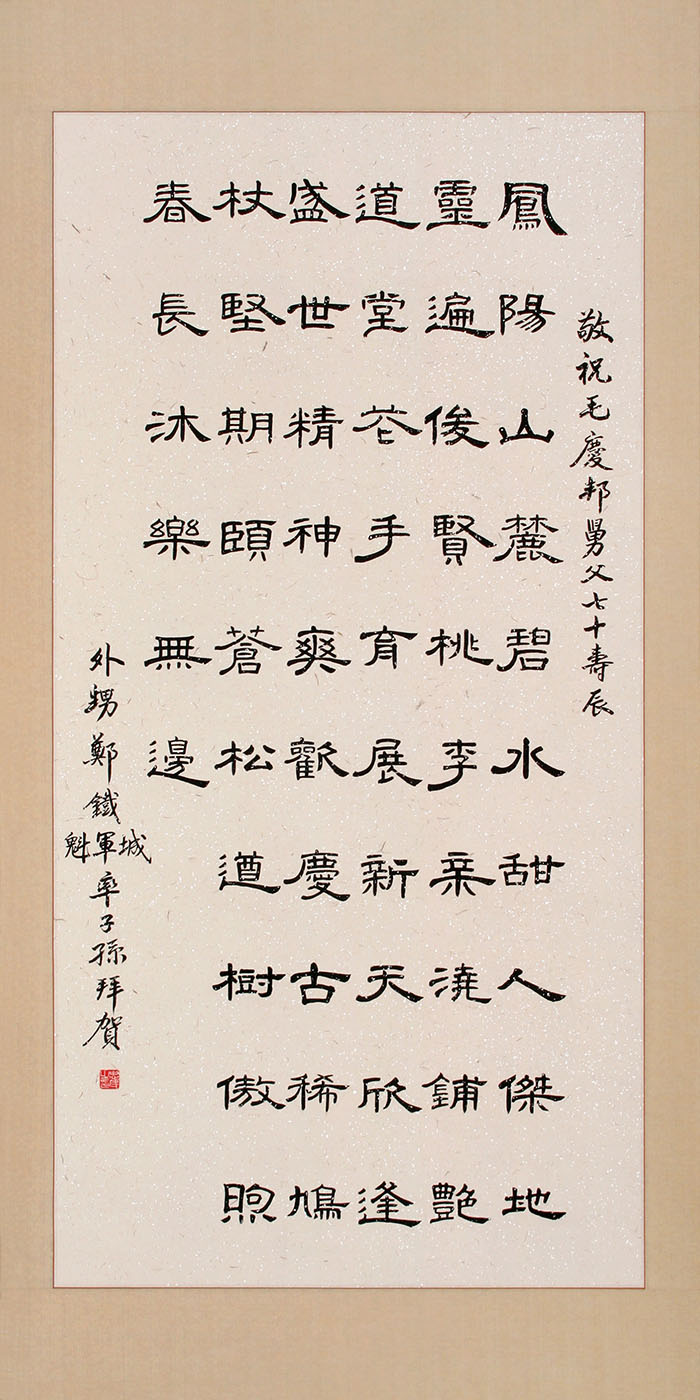 敬祝毛慶邦舅父七十壽辰
鳳陽山麓碧水甜人傑地
靈遍俊賢桃李亲澆鋪艷
道堂花手育展新天欣逢
盛世精神爽歡慶古稀鳩
杖堅期頤蒼松遒樹傲煦
春長沐樂無邊
外甥鄭鐵城軍魁率子孫拜賀